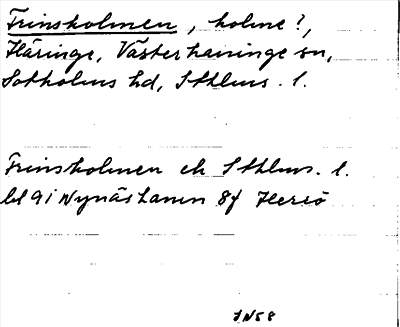 Frinsholmen, holme?,
Häringe, Västerhaninge sn,
Sotholms hd, Sthlms. l.
Frinsholmen ek Sthlms. l.
bl 91 Nynäshamn 8f Herrö
JN58